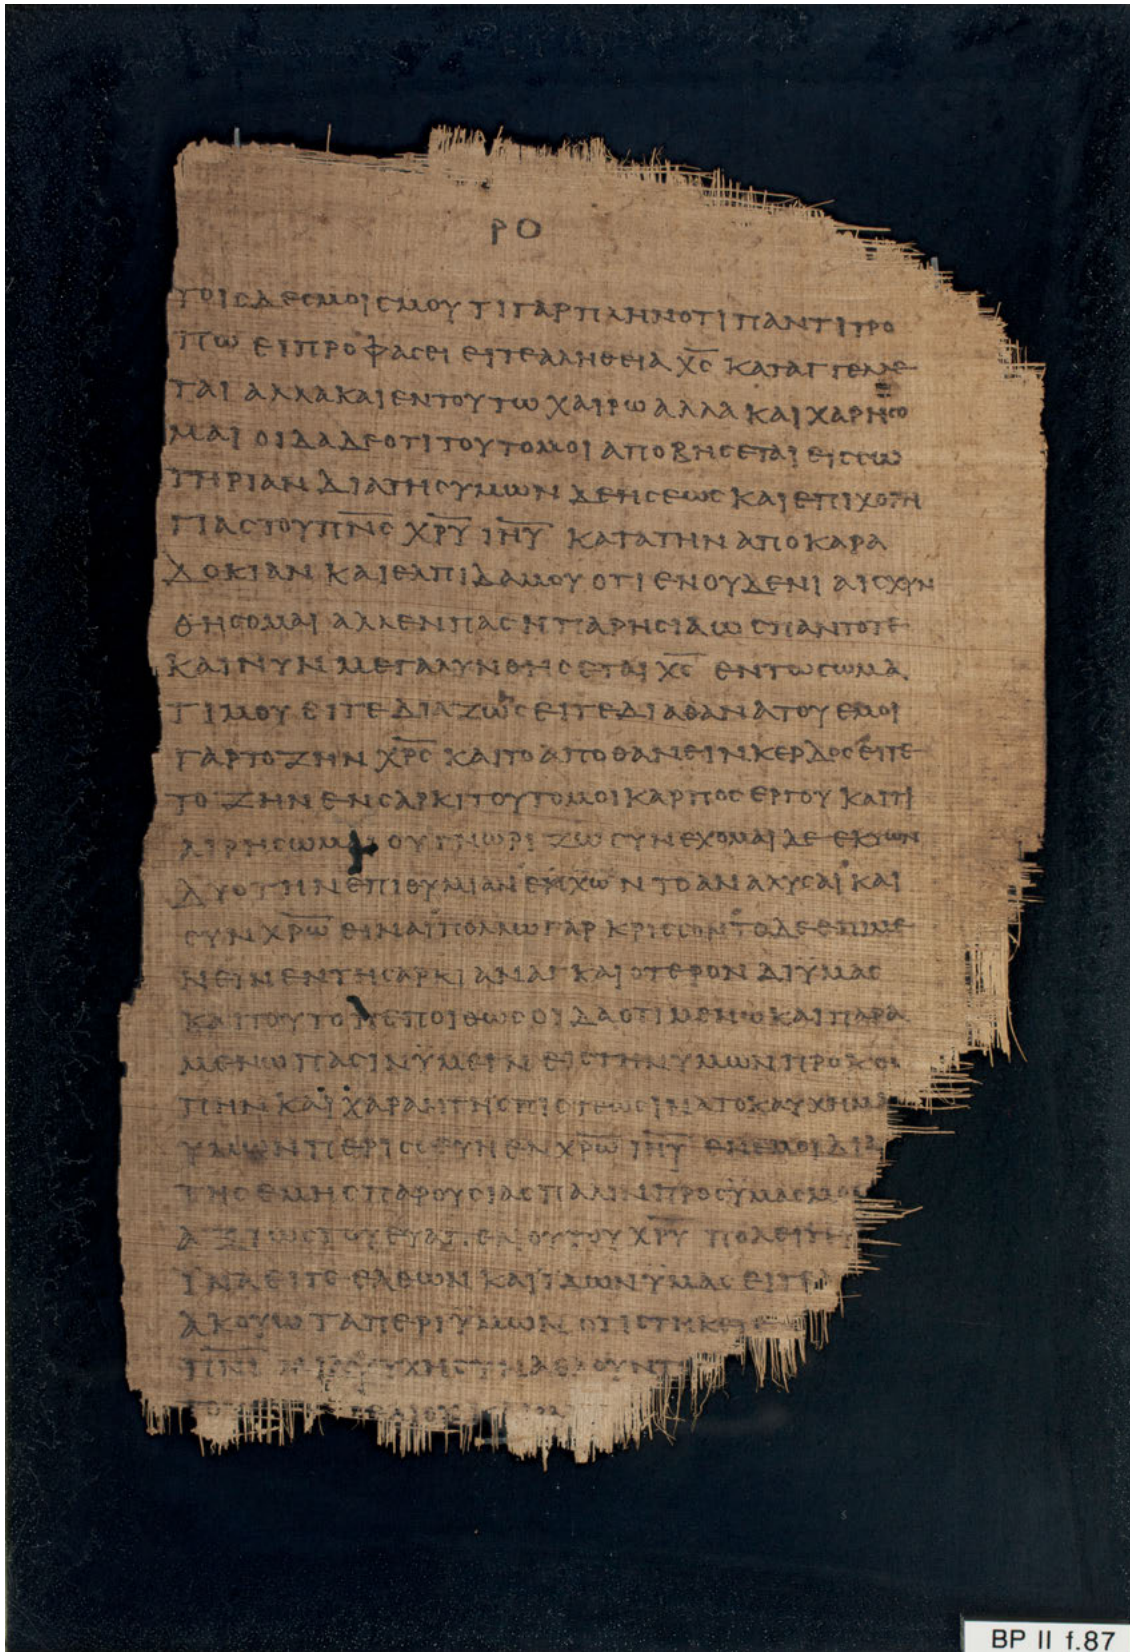 ΡΟ
ΤΟΙϹ ΔΕϹΜΟΙϹ ΜΟΥ ΤΙ ΓΑΡ ΠΛΗΝ ΟΤΙ ΠΑΝΤΙ ΤΡΟ
ΠΩ ΕΙ ΠΡΟΦΑϹΕΙ ΕΙΤΕ ΑΛΗΘΕΙΑ Χ̅Ϲ̅ ΚΑΤΑΓΓΕΛΛΕ
ΤΑΙ ΑΛΛΑ ΚΑΙ ΕΝ ΤΟΥΤΩ ΧΑΙΡΩ ΑΛΛΑ ΚΑΙ ΧΑΡΗϹΟ
ΜΑΙ ΟΙΔΑ ΔΕ ΟΤΙ ΤΟΥΤΟ ΜΟΙ ΑΠΟΒΗϹΕΤΑΙ ΕΙϹ ϹΩ
ΤΗΡΙΑΝ ΔΙΑ ΤΗϹ ΥΜΩΝ ΔΕΗϹΕΩϹ ΚΑΙ ΕΠΙΧΟΡΗ
ΓΙΑϹ ΤΟΥ Π̅Ν̅Ϲ̅ Χ̅Ρ̅Υ̅ Ι̅Η̅Υ̅ ΚΑΤΑ ΤΗΝ ΑΠΟΚΑΡΑ
ΔΟΚΙΑΝ ΚΑΙ ΕΛΠΙΔΑ ΜΟΥ ΟΤΙ ΕΝ ΟΥΔΕΝΙ ΑΙϹΧΥΝ
ΘΗϹΟΜΑΙ ΑΛΛ ΕΝ ΠΑϹΗ ΠΑΡΗϹΙΑ ΩϹ ΠΑΝΤΟΤΕ
ΚΑΙ ΝΥΝ ΜΕΓΑΛΥΝΘΗϹΕΤΑΙ Χ̅Ϲ̅ ΕΝ ΤΩ ϹΩΜΑ
ΤΙ ΜΟΥ ΕΙΤΕ ΔΙΑ ΖΩΗϹ ΕΙΤΕ ΔΙΑ ΘΑΝΑΤΟΥ ΕΜΟΙ
ΓΑΡ ΤΟ ΖΗΝ Χ̅Ρ̅Ϲ̅ ΚΑΙ ΤΟ ΑΠΟΘΑΝΕΙΝ ΚΕΡΔΟϹ ΕΙΤΕ
ΤΟ ΖΗΝ ΕΝ ϹΑΡΚΙ ΤΟΥΤΟ ΜΟΙ ΚΑΡΠΟϹ ΕΡΓΟΥ ΚΑΙ ΤΙ
ΑΙΡΗϹΩΜΑΙ ΟΥ ΓΝΩΡΙΖΩ ϹΥΝΕΧΟΜΑΙ ΔΕ ΕΚ ΤΩΝ
ΔΥΟ ΤΗΝ ΕΠΙΘΥΜΙΑΝ ΕΧΩΝ ΤΟ ΑΝΑΛΥϹΑΙ ΚΑΙ
ϹΥΝ Χ̅Ρ̅Ω̅ ΕΙΝΑΙ ΠΟΛΛΩ ΓΑΡ ΚΡΙϹϹΟΝ ΤΟ ΔΕ ΕΠΙΜΕ
ΝΕΙΝ ΕΝ ΤΗ ϹΑΡΚΙ ΑΝΑΓΚΑΙΟΤΕΡΟΝ ΔΙ ΫΜΑϹ
ΚΑΙ ΤΟΥΤΟ ΠΕΠΟΙΘΩϹ ΟΙΔΑ ΟΤΙ ΜΕΝΩ ΚΑΙ ΠΑΡΑ
ΜΕΝΩ ΠΑϹΙΝ ΫΜΕΙΝ ΕΙϹ ΤΗΝ ΥΜΩΝ ΠΡΟΚΟ
ΠΗΝ ΚΑΙ ΧΑΡΑΝ ΤΗϹ ΠΙϹΤΕΩϹ ΙΝΑ ΤΟ ΚΑΥΧΗΜΑ
ΥΜΩΝ ΠΕΡΙϹϹΕΥΗ ΕΝ Χ̅Ρ̅Ω̅ Ι̅Η̅Υ̅ ΕΝ ΕΜΟΙ ΔΙΑ
ΤΗϹ ΕΜΗϹ ΠΑΡΟΥϹΙΑϹ ΠΑΛΙΝ ΠΡΟϹ ΥΜΑϹ ΜΟ
ΑΞΙΩϹ ΤΟΥ ΕΥΑΓΓΕΛΙΟΥ ΤΟΥ Χ̅Ρ̅Υ̅ ΠΟΛΕΙΤΕ
ΪΝΑ ΕΙΤΕ ΕΛΘΩΝ ΚΑΙ ΪΔΩΝ ΥΜΑϹ ΕΙΤΕ
ΑΚΟΥΩ ΤΑ ΠΕΡΙ ΥΜΩΝ ΟΤΙ ϹΤΗΚΕΤΕ
Π̅Ν̅Ι̅ ΨΥΧΗ ϹΥΝΑΘΛΟΥΝΤ